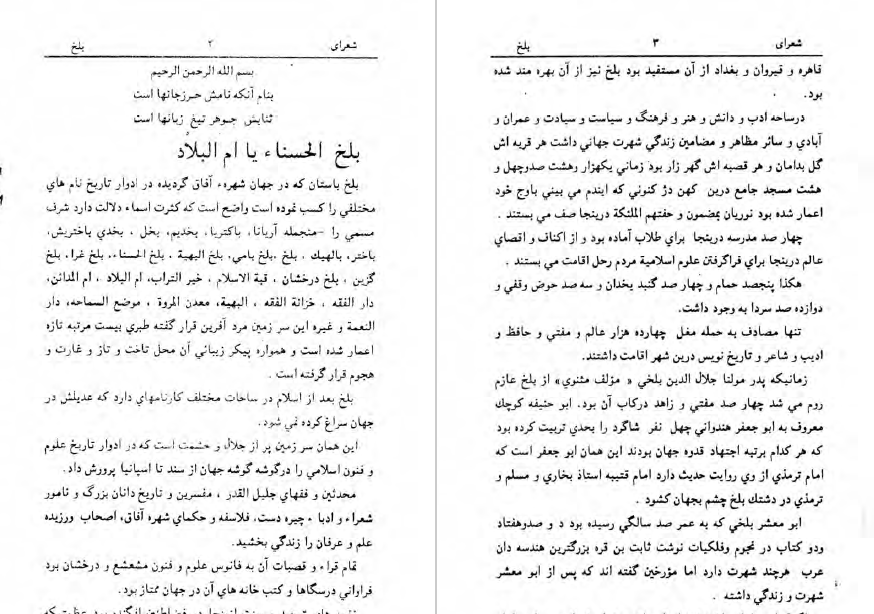 شعرای ۲ بلخ
بسم الله الرحمن الرحیم
بنام آنکه نامش حرزجانها است
ثنایش جوهر تیغ زبانها است
بلخ الحسناء یا ام البلاد
بلخ باستان که در جهان شهره‌ء آفاق گردیده در ادوار تاریخ نام هاي
مختلفي را کسب نموده است واضح است که کثرت اسماء دلالت دارد شرف
مسمی را -منجمله آریانا، باکتریا، بخدیم، بخل ، بخدي باختریش،
باختر، بالهیك ، بلخ ،بلخ بامي، بلخ البهیة ، بلخ الحسناء، بلخ غرا، بلخ
گزین ، بلخ درخشان ، قبة الاسلام ، خیر التراب، ام البلاد ، ام المدائن،
دار الفقه ، خزانة الفقه ، البهیة، معدن المروة ، موضع السماحه، دار
النعمة و غیره این سر زمین مرد آفرین قرار گفته طبري بیست مرتبه تازه
اعمار شده است و همواره پیکر زیبائي آن محل تاخت و تاز و غارت و
هجوم قرار گرفته است .
بلخ بعد از اسلام در ساحات مختلف کارنامهاي دارد که عدیلش در
جهان سراغ کرده نمي شود.
این همان سر زمین پر از جلال و حشمت است که در ادوار تاریخ علوم
و فنون اسلامي را درگوشه گوشه جهان از سند تا اسپانیا پرورش داد.
محدثین و فقهاي جلیل القدر ، مفسرین و تاریخ دانان بزرگ و نامور
شعراء و ادباء چیره دست، فلاسفه و حکماي شهره آفاق، اصحاب ورزیده
علم و عرفان را زندگي بخشید.
تمام قراء و قصبات آن به فانوس علوم و فنون مشعشع و درخشان برد
فراواني درسگاها و کتب خانه هاي آن در جهان ممتاز بود.
شعرای ۳ بلخ
قاهره و قیروان و بغداد از آن مستفید بود بلخ نیز از آن بهره مند شده
بود.
درساحه ادب و دانش و هنر و فرهنگ و سیاست و سیادت و عمران و
آبادي و سائر مظاهر و مضامین زندگي شهرت جهاني داشت هر قریه اش
گل بدامان و هر قصبه اش گهر زار بود زماني یکهزار وهشت صدوچهل و
هشت مسجد جامع درین کهن دژ کنوني که ایندم مي بیني باوج خود
اعمار شده بود نوریان بمضمون و حفتهم الملئکة درینجا صف مي بستند .
چهار صد مدرسه درینجا براي طلاب آماده بود و از اکناف و اقصاي
عالم درینجا براي فراگرفتن علوم اسلامیة مردم رحل اقامت مي بستند .
هکذا پنجصد حمام و چهار صد گنبد یخدان و سه صد حوض وقفي و
دوازده صد سردابه وجود داشت.
تنها مصادف به حمله مغل چهارده هزار عالم و مفتي و حافظ و
ادیب و شاعر و تاریخ نویس درین شهر اقامت داشتند.
زمانیکه پدر مولنا جلال الدین بلخي « مؤلف مثنوي» از بلخ عازم
روم مي شد چهار صد مفتي و زاهد درکاب آن بود. ابو حنیفه کوچك
معروف به ابو جعفر هندواني چهل نفر شاگرد را بحدي تربیت کرده بود
که هر کدام برتبه اجتهاد قدوه جهان بودند این همان ابو جعفر است که
امام ترمذي از وي روایت حدیث دارد امام قتیبه استاذ بخاري و مسلم و
ترمذي در دشتك بلخ چشم بجهان کشود .
ابو معشر بلخي که به عمر صد سالگي رسیده بود د و صدوهفتاد
ودو کتاب در نجوم وفلکیات نوشت ثابت بن قره بزرگترین هندسه دان
عرب هرچند شهرت دارد اما مؤرخین گفته اند که پس از ابو معشر
شهرت و زندگي داشته .